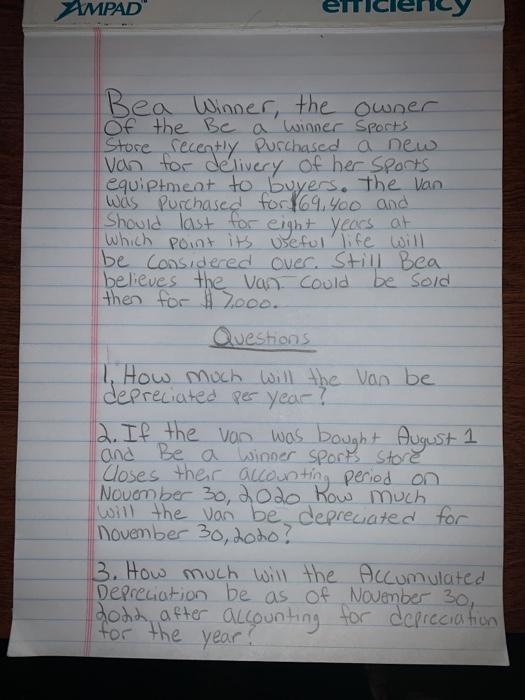 AMPAD
efficiency
Bea Winner, the owner
Of the Be a winner Sports
Store recently purchased a new
Van for delivery of her Sports
equiptment to buyers. The Van
was purchased for $69,400 and
Should last for eight years at
which point its useful life will
be considered over. Still Bea
believes the van could be sold
then for $ 7,000.
Questions
1. How much will the Van be
depreciated per year?
2. If the van was bought August 1
and Be a winner sports store
Closes their accounting period on
November 30, 2020 How much
will the van be depreciated for
november 30, 2020?
3. How much will the Accumulated
Depreciation be as of November 30,
2022, after accounting for depreciation
for the year?